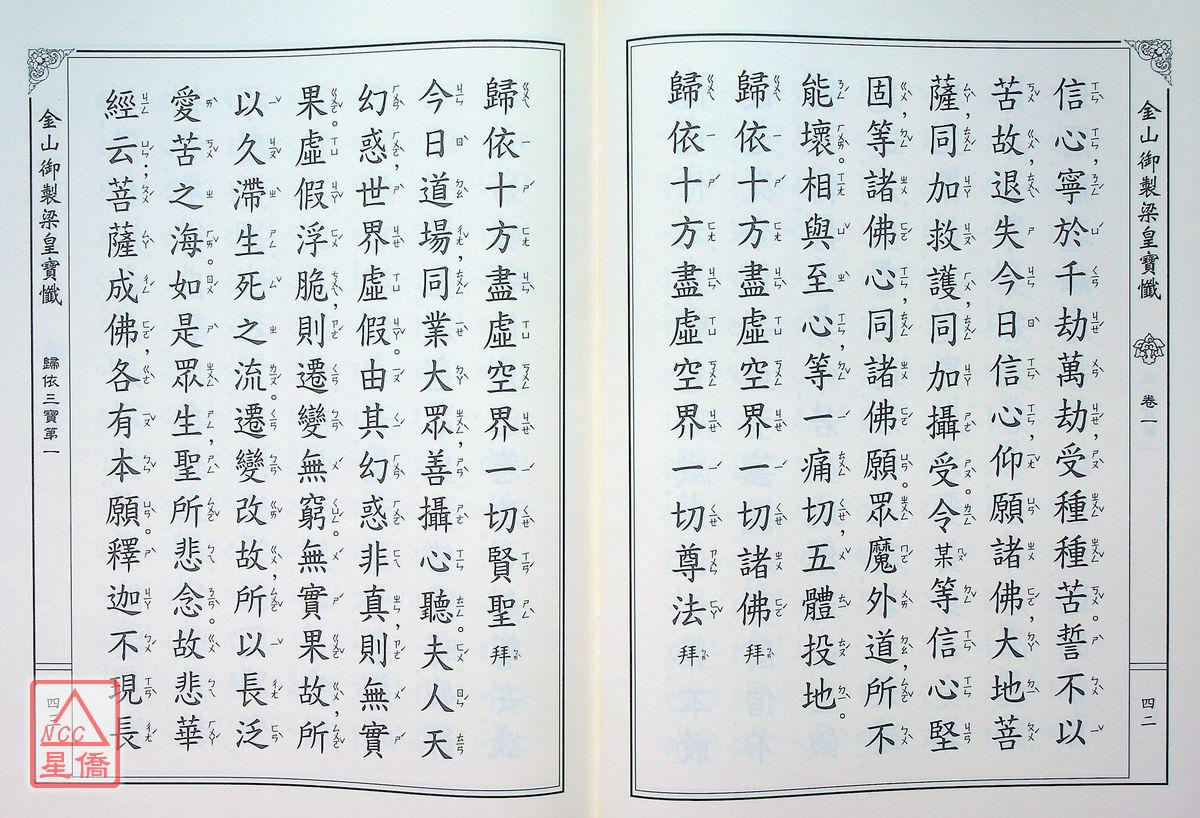 金山御製梁皇寶懺 卷一 四二
信心寧於千劫萬劫受種種苦。誓不以
苦故,退失今日信心,仰願諸佛,大地菩
薩,同加救護,同加攝受。令某等信心堅
固,等諸佛心,同諸佛願。眾魔外道,所不
能壞。相與至心,等一痛切,五體投地。
歸依十方盡虛空界一切諸佛 拜
歸依十方盡虛空界一切尊法 拜
歸依十方盡虛空界一切賢聖 拜
今日道場,同業大眾,善攝心聽。夫人天
幻惑,世界虛假。由其幻惑非真,則無實
果。虛假浮脆,則遷變無窮。無實果故,所
以久滯生死之流。遷變改故,所以長泛
愛苦之海。如是眾生,聖所悲念。故悲華
經云:菩薩成佛,各有本願。釋迦不現長
金山御製梁皇寶懺 歸依三寶第一 四三
NCC
星僑